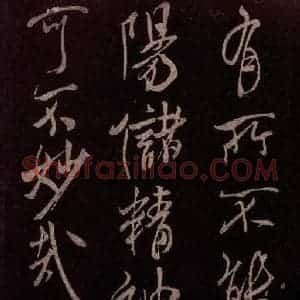 有所不能
陽儲精神
可不妙哉
Shufaziliao.com